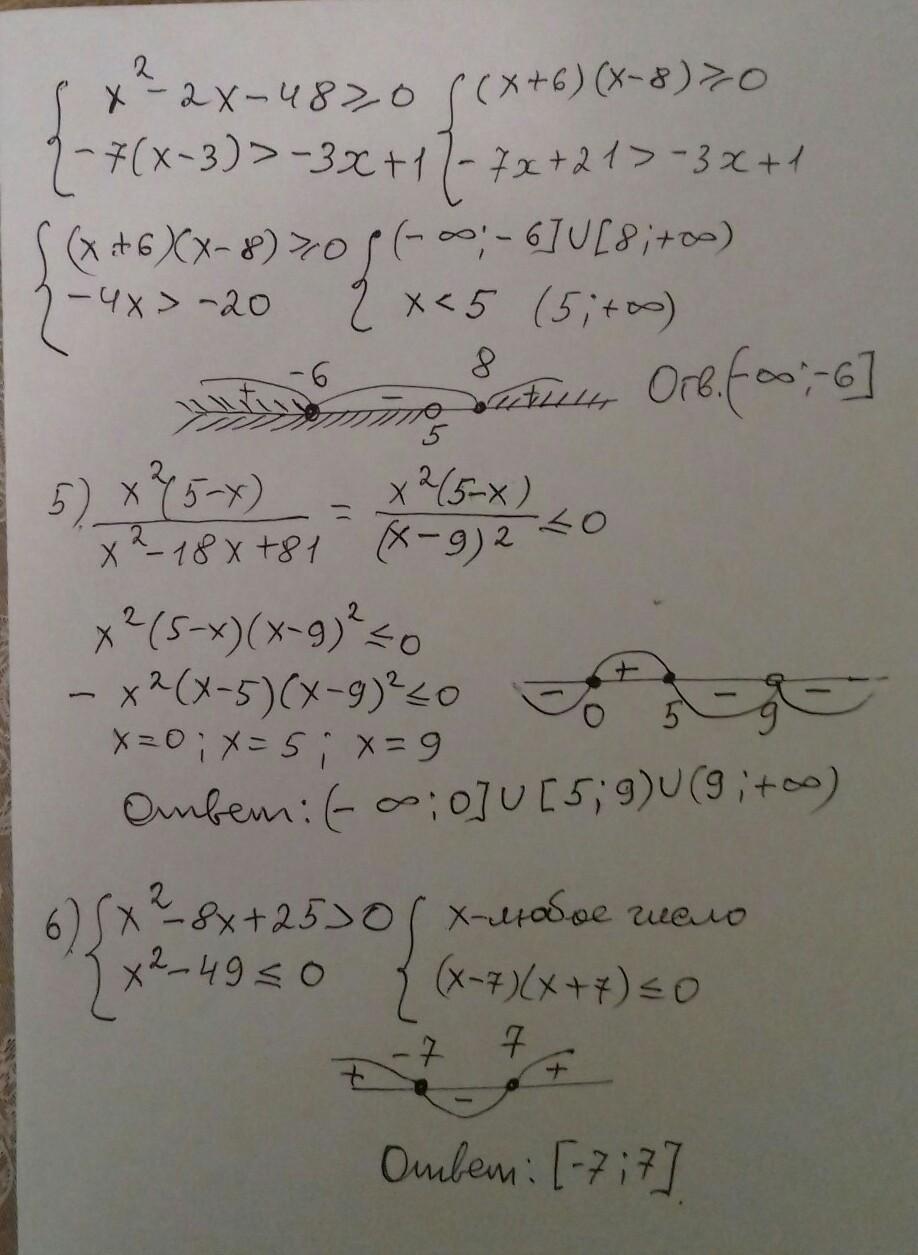 { x² - 2x - 48 ≥ 0 { (x+6)(x-8) ≥ 0
{ -7(x-3) > -3x+1 { -7x+21 > -3x+1
{ (x+6)(x-8) ≥ 0 { (-∞; -6] ∪ [8; +∞)
{ -4x > -20 { x < 5 (5; +∞)
-6 8
+ - +
5
Отв. (-∞; -6]
5) x²(5-x) / (x²-18x+81) = x²(5-x) / (x-9)² ≤ 0
x²(5-x)(x-9)² ≤ 0
- x²(x-5)(x-9)² ≤ 0
x=0; x=5; x=9
- + - -
0 5 9
Ответ: (-∞; 0] ∪ [5; 9) ∪ (9; +∞)
6) { x² - 8x + 25 > 0 { x-любое число
{ x² - 49 ≤ 0 { (x-7)(x+7) ≤ 0
-7 7
+ - +
Ответ: [-7; 7]